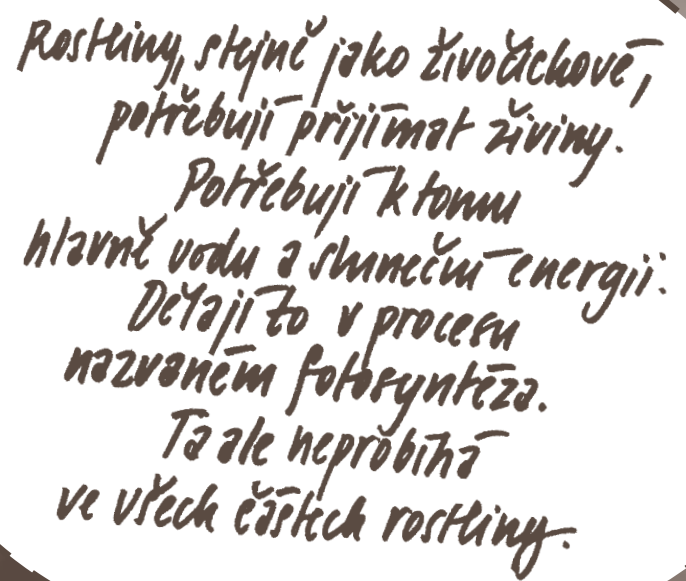 Rostliny, stejně jako živočichové,
potřebují přijímat živiny.
Potřebují k tomu
hlavně vodu a sluneční energii.
Dělají to v procesu
nazvaném fotosyntéza.
Ta ale neprobíhá
ve všech částech rostliny.